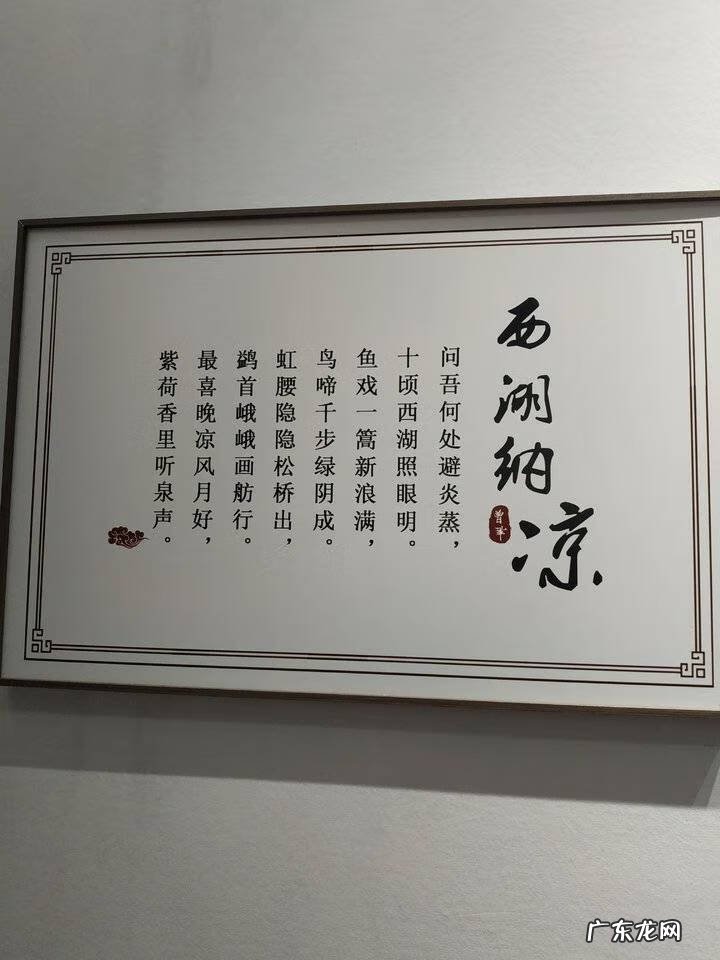 西湖纳凉
曾巩
问吾何处避炎蒸，
十顷西湖照眼明。
鱼戏一篙新浪满，
鸟啼千步绿阴成。
虹腰隐隐松桥出，
鹢首峨峨画舫行。
最喜晚凉风月好，
紫荷香里听泉声。
广东龙网